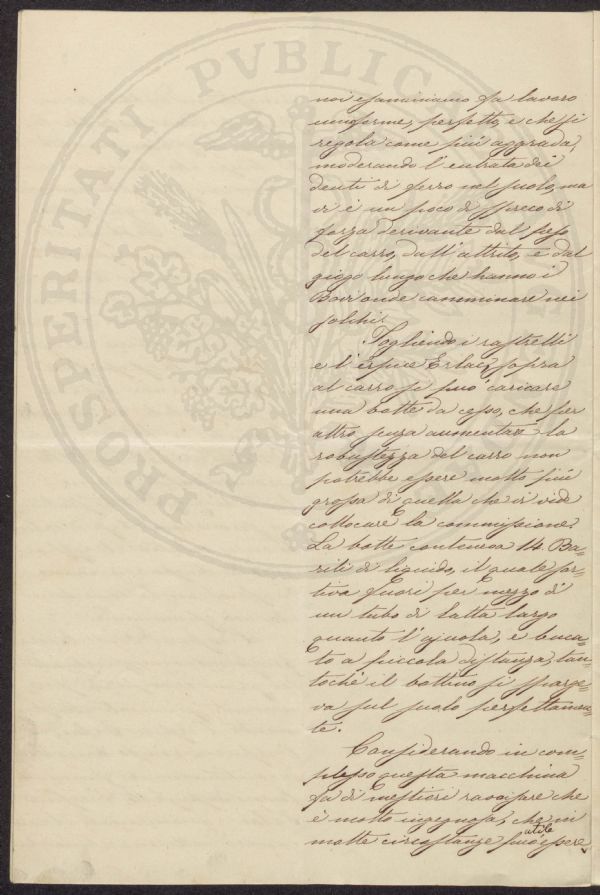 PROSPERITATI PVBLICAE
noi esaminiamo fa lavoro
uniforme, perfetto, e che si
regola come piú aggrada,
moderando l'entrata dei
denti di ferro nel suolo, ma
vi é un poco di spreco di
forza derivante dal peso
del carro, dall'attrito, e dal
giogo lungo che hanno i
Bovi onde camminare nei
solchi.
Togliendo i rastrelli
e l'erpice sopra
al carro si puó caricare
una botte da cesso, che per
altro senza aumentare la
robustezza del carro non
potrebbe essere molto piú
grossa di quella che si vide
collocare la commissione.
La botte conteneva 14. Ba=
rili di liquido, il quale sor=
tiva fuori per mezzo di
un tubo di latta largo
quanto l'ajuola, e buca=
to a piccola distanza, tan=
toché il bottino si sparge=
va sul suolo perfettamen=
te.
Considerando in com=
plesso questa macchina
fa di mestieri ravvisare che
é molto ingegnosa, che in
molte circostanze puó utile essere